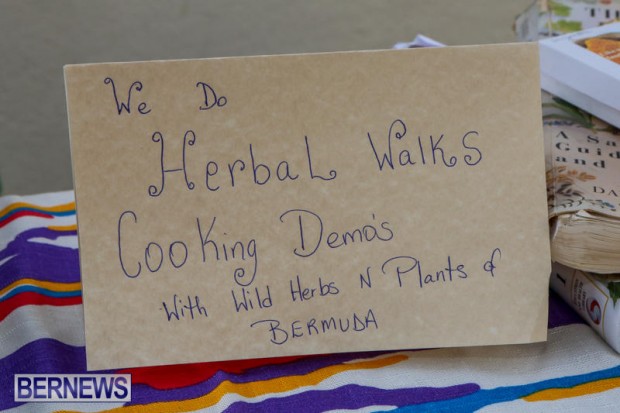 We Do
Herbal Walks
Cooking Demo's
With Wild Herbs N Plants of
BERMUDA
A Sa
Guid
and
DA
BERNEWS